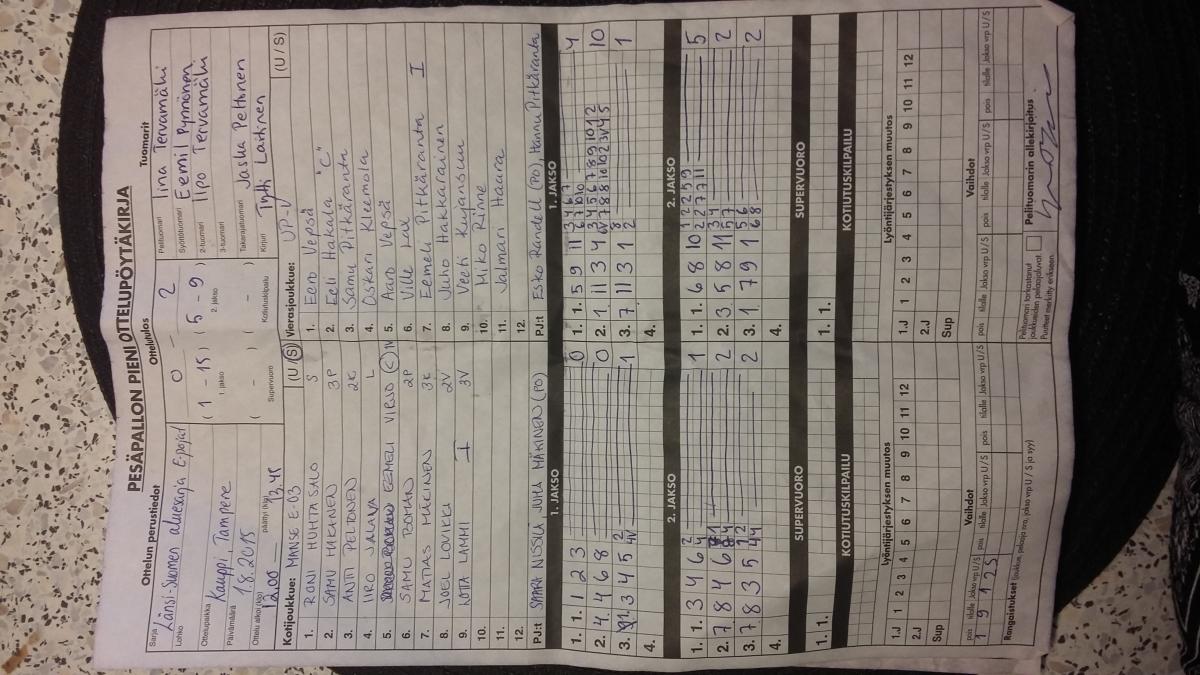 PESÄPALLON PIENI OTTELUPÖYTÄKIRJA
Ottelun perustiedot
Sarja Länsi-Suomen aluesarja E-pojat
Lohko
Ottelupaikka Kauppi, Tampere
Päivämäärä 1.8.2015
Ottelu alkoi (klo) 12.00 päättyi (klo) 13.45
Ottelutulos
0 - 2
( 1 - 15 ) ( 5 - 9 )
1. jakso 2. jakso
( - ) ( - )
Supervuoro Kotiutuskilpailu
Tuomarit
Pelituomari Iina Tervamäki
Syöttötuomari Eemil Pynnönen
2-tuomari Ilpo Tervamäki
3-tuomari
Takarajatuomari Jaska Peltonen
Kirjuri Tytti Laitinen
Kotijoukkue: MANSE E-03 (U/S)
1. RONI HUHTASALO S
2. SAMU MIKKINEN 3P
3. ANTTI PELTONEN 2K
4. IIRO JALAVA L
5. EEMELI VIRJO (C) 1V
6. SAMU BOMAN 2P
7. MATIAS MÄKINEN 3K
8. JOEL LOVIKKA 2V
9. LOTTA LAMMI I 3V
10.
11.
12.
PJ:t SAARA NISSILÄ JUHA MÄKINEN (PO)
Vierasjoukkue: UP-V (U/S)
1. Eero Vepsä
2. Eeli Hakala "C"
3. Samu Pitkäranta
4. Oskari Kleemola
5. Aaro Vepsä
6. Ville Lax
7. Eemeli Pitkäranta I
8. Juho Hakkarainen
9. Veeti Kujansuu
10. Miko Rinne
11. Jalmari Haara
12.
PJ:t Esko Randell (PO), Hannu Pitkäranta
1. JAKSO
1. 1. 1 2 3 0
2. 4. 4 6 8 0
3. 3 4 5 1
4.
2. JAKSO
1. 1. 3 4 6 1
2. 7. 8 4 6 2
3. 7 8 3 5 2
4.
SUPERVUORO
1. 1.
KOTIUTUSKILPAILU
1. JAKSO
1. 1. 5 9 11 4
2. 1 11 3 4 10
3. 7. 11 3 1 1
4.
2. JAKSO
1. 1. 6 8 10 5
2. 3. 5 8 11 2
3. 1 7 9 1 2
4.
SUPERVUORO
1. 1.
KOTIUTUSKILPAILU
Lyöntijärjestyksen muutos
1 2 3 4 5 6 7 8 9 10 11 12
1.J
2.J
Sup
Vaihdot
pois tilalle Jakso vrp U/S pois tilalle Jakso vrp U/S pois tilalle Jakso vrp U/S
1 9 1 2 S
Rangaistukset (joukkue, pelaaja nro, jakso vrp U / S ja syy)
Lyöntijärjestyksen muutos
1 2 3 4 5 6 7 8 9 10 11 12
1.J
2.J
Sup
Vaihdot
pois tilalle Jakso vrp U/S pois tilalle Jakso vrp U/S pois tilalle Jakso vrp U/S
Pelituomari tarkastanut
joukkueiden pelaajaluvat.
Puutteet merkitty erikseen.
Pelituomarin allekirjoitus